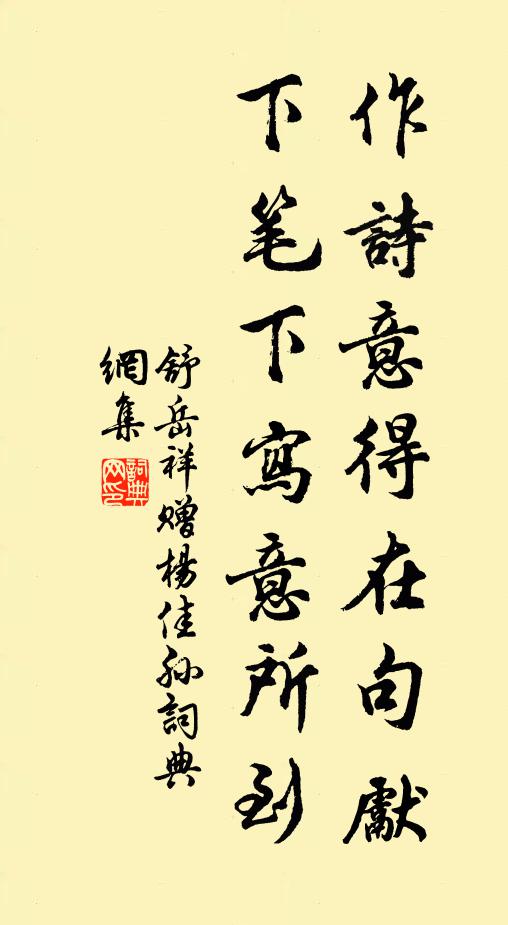 作詩意得在句獻
下笔下寫意所到
舒岳祥赠楊佳孙詞典
網集
詞典
网印